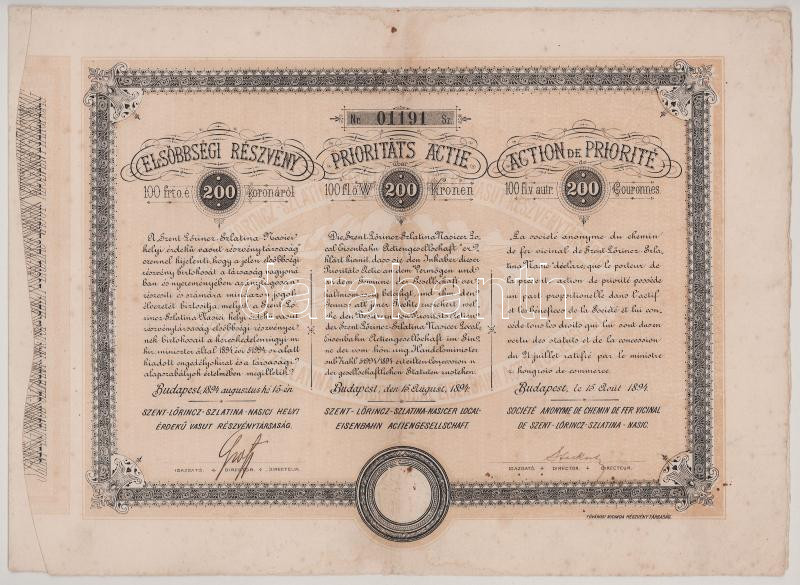 Nr. 01191 Sz.
ELSŐBBSÉGI RÉSZVÉNY
100 frt o.é. 200 koronáról
A Szent Lőrincz-Szlatina-Nasici
helyi érdekű vasut részvénytársaság
ezennel kijelenti, hogy a jelen elsőbbségi
részvény birtokosát a társaság vagyoná-
ban és nyereményében aránylagosan
részesíti és számára mindazon jogok
élvezetét biztosítja, melyek a Szent Lő-
rincz-Szlatina-Nasici helyi érdekű vasut
részvénytársaság elsőbbségi részvényei-
nek birtokosait a kereskedelemügyi m.
kir. miniszter által 1894 évi 51994 sz. alatt
kiadott engedélyokirat és a társasági
alapszabályok értelmében megilletik.
Budapest, 1894. augusztus hó 15-én
SZENT-LŐRINCZ-SZLATINA-NASICI HELYI
ÉRDEKŰ VASUT RÉSZVÉNYTÁRSASÁG.
IGAZGATÓ. DIRECTOR. DIRECTEUR.
PRIORITÄTS ACTIE
über
100 fl.ö.W. 200 Kronen
Die Szent Lőrincz-Szlatina Nasicer Lo-
cal Eisenbahn Actiengesellschaft er-
klärt hiemit, dass sie den Inhaber dieser
Prioritäts Actie an dem Vermögen und
an dem Gewinne der Gesellschaft ver-
hältnissmässig betheiligt und ihm den
Genuss all jener Rechte zusichert, welche
den Besitzern der Prioritäts Actien
der Szent Lőrincz-Szlatina Nasicer Local
Eisenbahn Actiengesellschaft im Sin-
ne der vom kön. ung. Handelsminister
sub Zahl 51994/1894 ertheilten Concession u.
der gesellschaftlichen Statuten zustehen.
Budapest, den 15 August, 1894.
SZENT-LŐRINCZ-SZLATINA-NASICER LOCAL-
EISENBAHN ACTIENGESELLSCHAFT.
ACTION DE PRIORITÉ
de
100 fl.v. autr. 200 Couronnes
La société anonyme du chemin
de fer vicinal de Szent Lőrincz-Szla-
tina Nasic déclare, que le porteur de
la présente action de priorité possède
un part proportionelle dans l'actif
et les bénéfices de la Société et lui con-
cède tous les droits qui lui sont dus en
vertu des statuts et de la concession
du 21 juillet ratifié par le ministre
r. hongrois de commerce.
Budapest, le 15 Août 1894.
SOCIÉTÉ ANONYME DE CHEMIN DE FER VICINAL
DE SZENT-LŐRINCZ-SZLATINA-NASIC.
IGAZGATÓ. DIRECTOR. DIRECTEUR.
FŐVÁROSI NYOMDA RÉSZVÉNYTÁRSASÁG.
darabanth